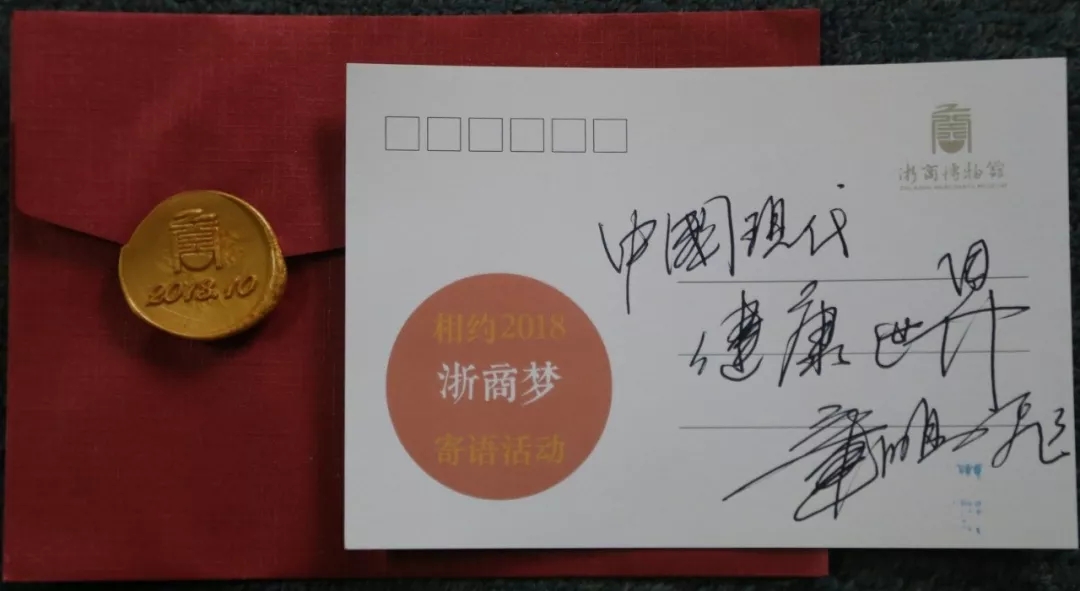 2018.10
浙商博物馆
ZHEJIANG MERCHANTS MUSEUM
中國现代
健康世界
相约2018
浙商梦
寄语活动